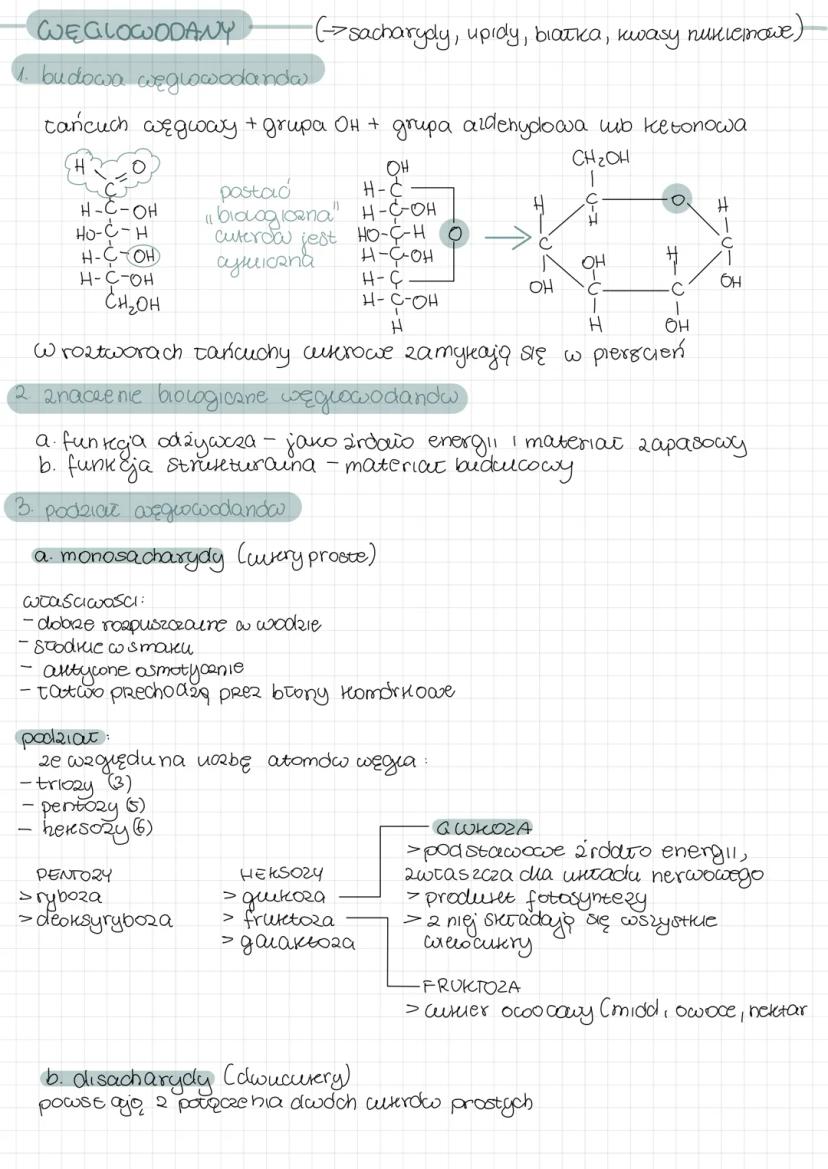 WĘGLOWODANY (→sacharydy, lipidy, białka, kwasy nukleinowe)
1. budowa węglowodanów
łańcuch węglowy + grupa OH + grupa aldehydowa lub ketonowa
H O
C
H-C-OH
HO-C-H
H-C-OH
H-C-OH
CH₂OH
postać
"biologiczna"
cukrów jest
cykliczna
OH
H-C
H-C-OH
HO-C-H O
H-C-OH
H-C
H-C-OH
H
→
CH₂OH
C O
H H H
C OH H C
OH C C OH
H OH
w roztworach łańcuchy cukrowe zamykają się w pierścień
2 znaczenie biologiczne węglowodanów
a. funkcja odżywcza - jako źródło energii i materiał zapasowy
b. funkcja strukturalna - materiał budulcowy
3. podział węglowodanów
a. monosacharydy (cukry proste)
właściwości:
- dobrze rozpuszczalne w wodzie
- słodkie w smaku
- aktywne osmotycznie
- łatwo przechodzą przez błony komórkowe
podział:
ze względu na liczbę atomów węgla:
- triozy (3)
- pentozy (5)
- heksozy (6)
PENTOZY
> ryboza
> deoksyryboza
HEKSOZY
> glukoza
> fruktoza
> galaktoza
GLUKOZA
> podstawowe źródło energii,
zwłaszcza dla układu nerwowego
> produkt fotosyntezy
> z niej składają się wszystkie
wielocukry
FRUKTOZA
> cukier owocowy (miód, owoce, nektar
b. disacharydy (dwucukry)
powstają z połączenia dwóch cukrów prostych